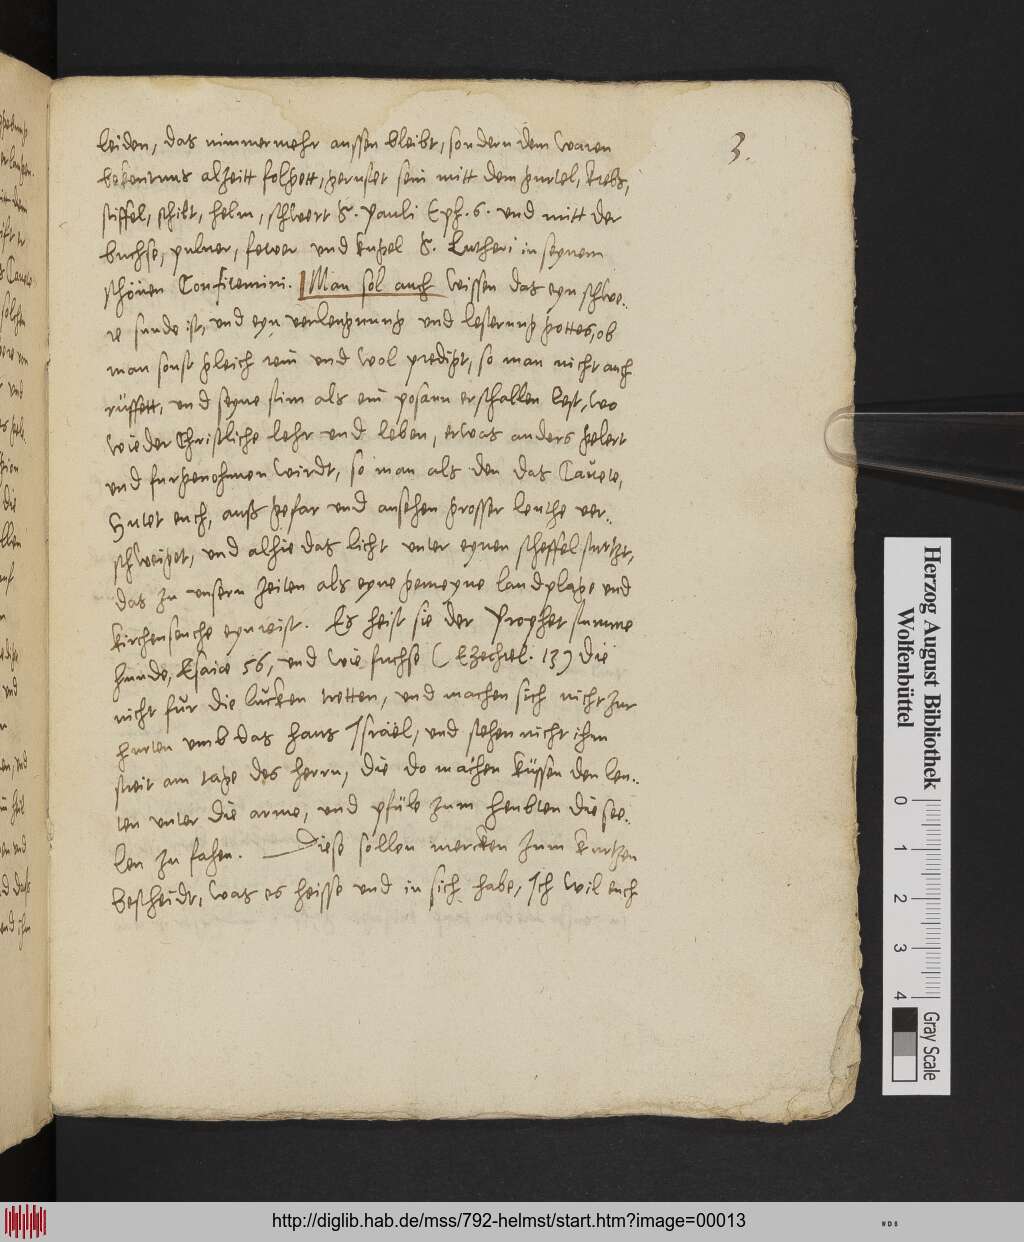 3.
leiden, das nimmermehr aussen bleibt, sondern dem waren
bekentnus alzeitt folgett, gerustet sein mitt dem gurtel, krebs,
stiffel, schilt, helm, schwert S. Pauli Eph. 6. und mitt der
buchse, puluer, fewer und kugel S. Lutheri in seynem
schönen Confitemini. Man sol auch wissen das eyn schwe..
re sunde ist, und eyn verleugnung und lesterung gottes, ob
man sonst gleich rein und wol predigt, so man nicht auch
rüffett, und seyne stim als ein posaun erschallen lest, wo
wieder Christliche lehr und leben, etwas anders gelert
und furgenohmen wirdt, so man als den das Cauete,
Hutet euch, auss gefar und ansehen grosser leuthe ver..
schweiget, und alhie das licht unter eynen scheffel sturtzt,
das zu unsern zeiten als eyne gemeyne landplage und
kirchenseuche eynreist. Es heist sie der Prophet stumme
hunde, Esaiae 56, und wie fuchse (Ezechiel. 13) die
nicht für die lucken tretten, und machen sich nicht zur
hurten umb das haus Israël, und stehen nicht ihm
streit am tage des herrn, die do machen küssen den leu..
ten unter die arme, und pfüle zum heubten die see..
len zu fahen. Diese sollen mercken zum kurtzen
bescheidt, was es heisse und in sich habe, Ich wil euch
Herzog August Bibliothek
Wolfenbüttel
0 1 2 3 4
Gray Scale
http://diglib.hab.de/mss/792-helmst/start.htm?image=00013